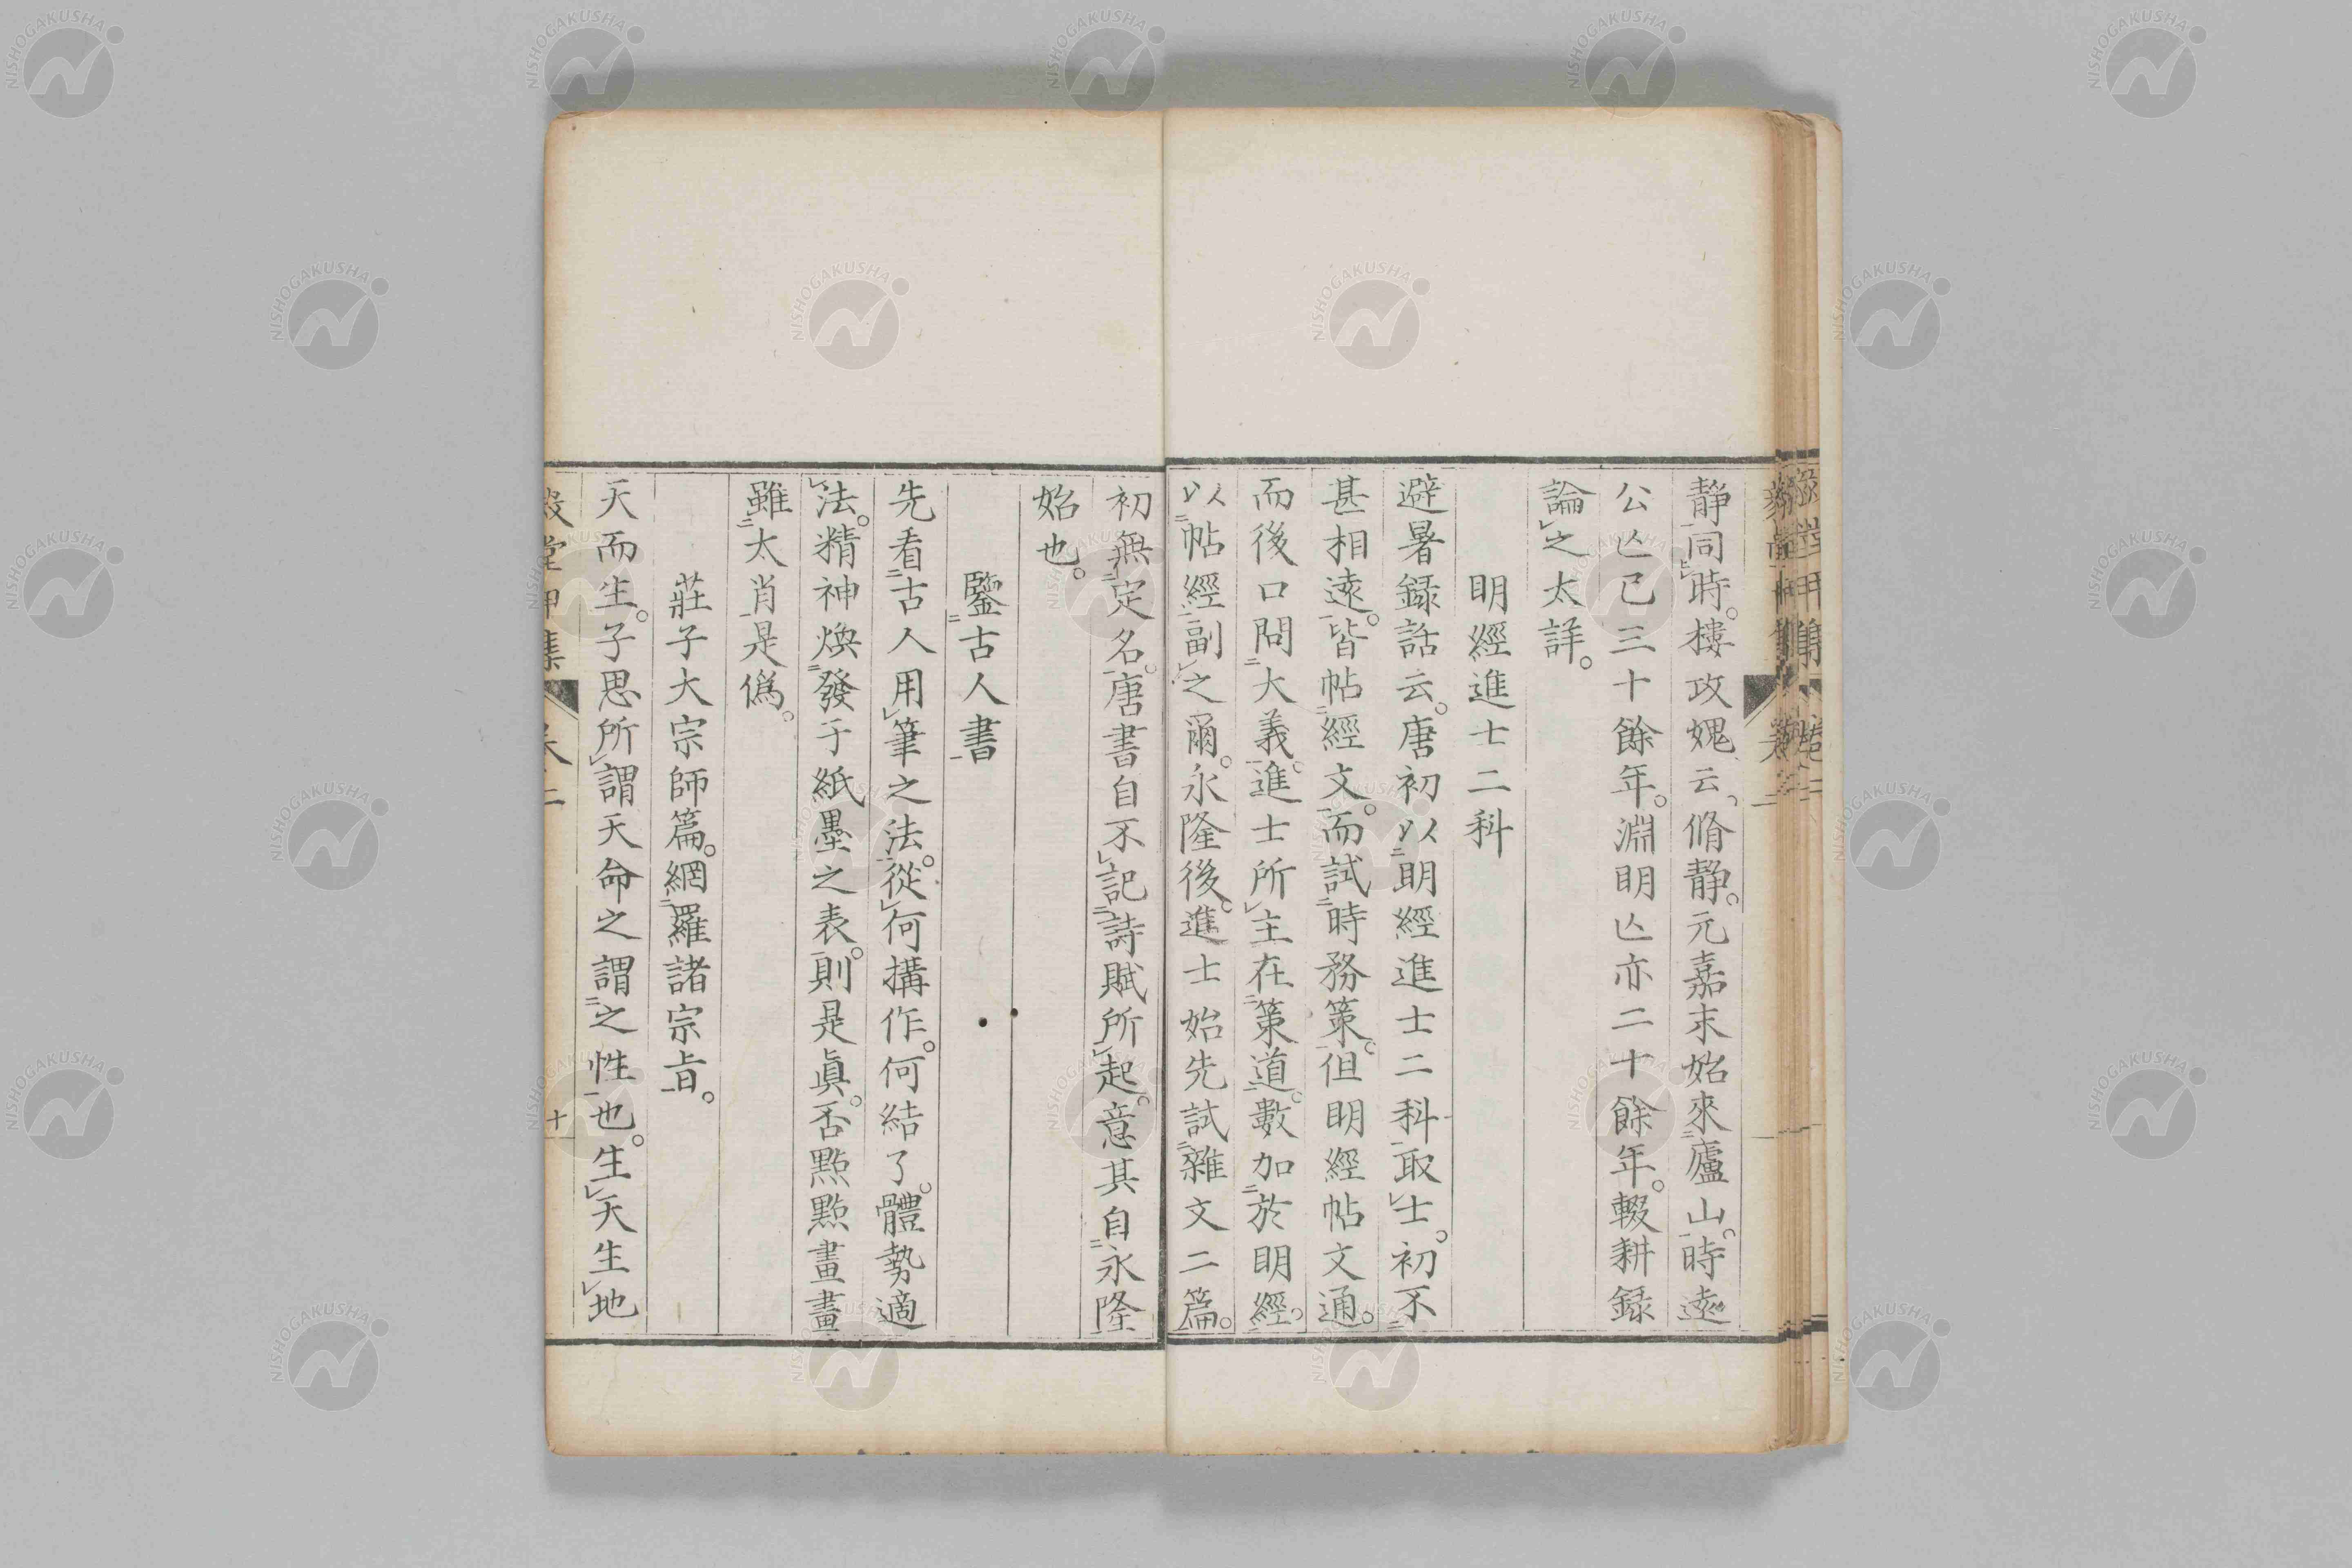 靜同時。樓攻媿云、脩靜。元嘉末始來廬山。時遠
公亾已三十餘年。淵明亾亦二十餘年。輟耕録
論之太詳。
明經進士二科
避暑録話云。唐初以明經進士二科取士。初不
甚相遠。皆帖經文。而試時務策。但明經帖文通。
而後口問大義。進士所主在策道。數加於明經。
以帖經副之爾。永隆後。進士始先試雜文二篇。
初無定名。唐書自不記詩賦所起。意其自永隆
始也。
鑒古人書
先看古人用筆之法。從何搆作。何結了。體勢適
法。精神煥發于紙墨之表。則是眞。否㸃㸃畫畫
雖太肖是僞。
莊子大宗師篇。網羅諸宗㫖。
天而生。子思所謂天命之謂之性也。生天生地
堂甲集 卷二 十
NISHOGAKUSHA